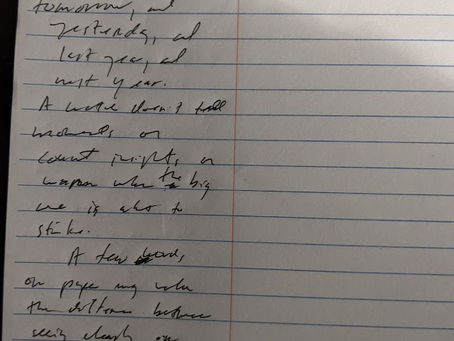 tomorrow, and
yesterday, and
last year, and
next year.
A watch doesn't tell
moments, or
count insights, or
when the big
one is about to
strike.
A few words,
on paper may make
the difference between
seeing clearly or